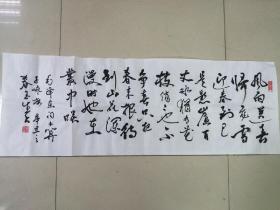 风雨送春
归飞雪
迎春到已
是悬崖百
丈冰犹有花
枝俏々也不
争春只把
春来报待
到山花烂
漫时她在
叢中咲
毛泽东词卜算
子咏梅辛丑之
春